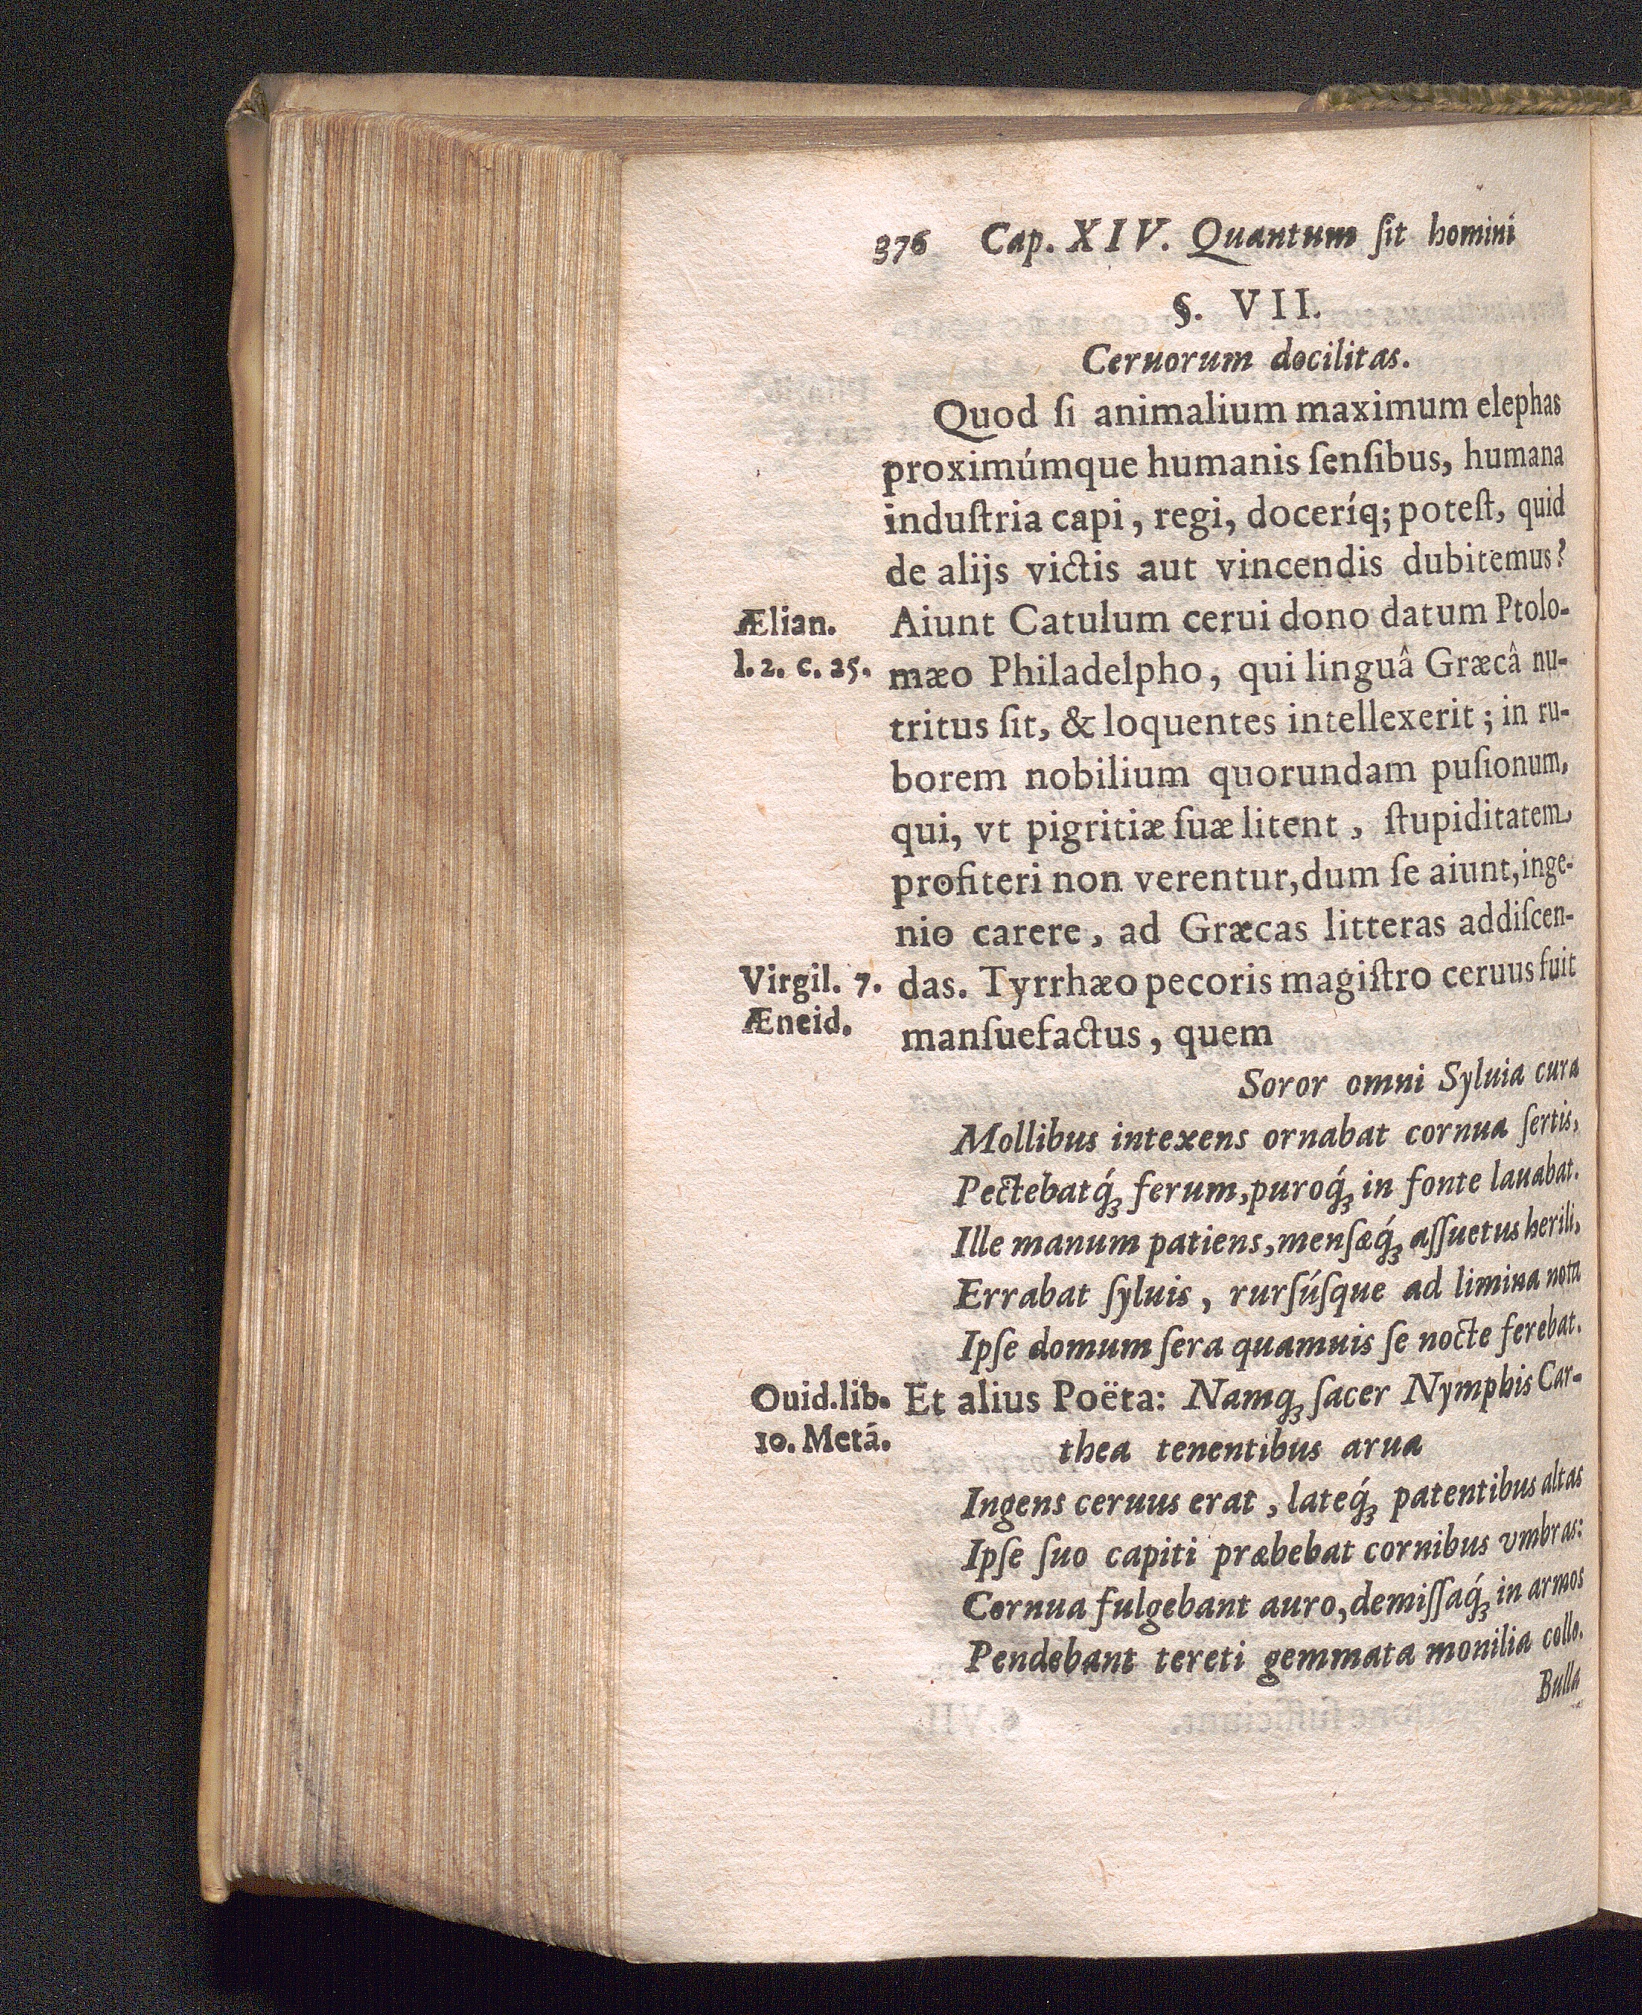 376 Cap. XIV. Quantum ſit homini
§. VII.
Ceruorum docilitas.
Quod ſi animalium maximum elephas
proximúmque humanis ſenſibus, humana
induſtria capi, regi, doceríq; poteſt, quid
de alijs victis aut vincendis dubitemus?
Ælian.
l. 2. c. 25.
Aiunt Catulum cerui dono datum Ptolo-
mæo Philadelpho, qui linguâ Græcâ nu-
tritus ſit, & loquentes intellexerit; in ru-
borem nobilium quorundam puſionum,
qui, vt pigritiæ ſuæ litent, ſtupiditatem
profiteri non verentur, dum ſe aiunt, inge-
nio carere, ad Græcas litteras addiſcen-
Virgil. 7.
Æneid.
das. Tyrrhæo pecoris magiſtro ceruus fuit
manſuefactus, quem
Soror omni Syluia cura
Mollibus intexens ornabat cornua ſertis,
Pectebatq́; ferum, puroq́; in fonte lauabat.
Ille manum patiens, menſæq́; aſſuetus herili,
Errabat ſyluis, rurſúſque ad limina nota
Ipſe domum ſera quamuis ſe nocte ferebat.
Ouid. lib.
10. Metā.
Et alius Poëta: Namq; ſacer Nymphis Car-
thea tenentibus arua
Ingens ceruus erat, lateq́; patentibus altas
Ipſe ſuo capiti præbebat cornibus vmbras:
Cornua fulgebant auro, demiſſaq́; in armos
Pendebant tereti gemmata monilia collo.
Bulla